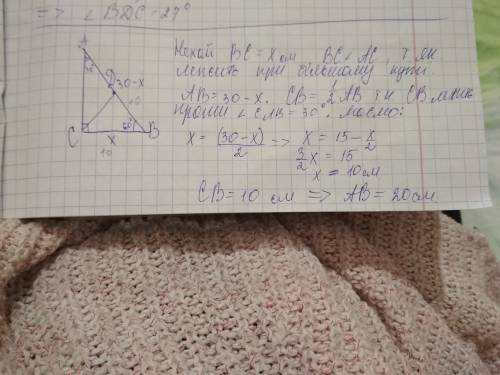 => ∠BDC = 27°
A
D
30-x
C
60°
B
x
10
Нехай BC = x см BC < AC, т як
лежить при більшому куті.
AB = 30 - x. CB = 1/2 AB т.к CB леж
проти ∠CAB = 30°. Маємо:
x = (30-x)/2 => x = 15 - x/2
3/2 x = 15
x = 10 см
CB = 10 см => AB = 20 см